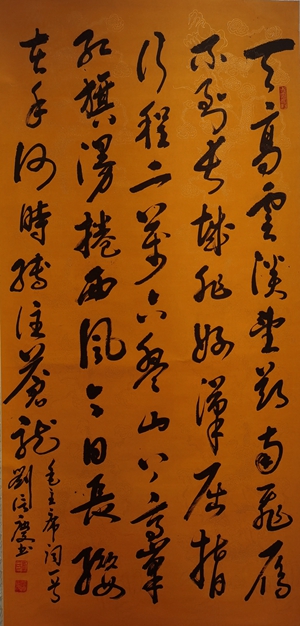 天高雲淡望斷南飛雁
不到長城非好漢屈指
行程二萬六盤山上高峯
紅旗漫捲西風今日長纓
在手何時縛住蒼龍
毛主席词一首
劉书